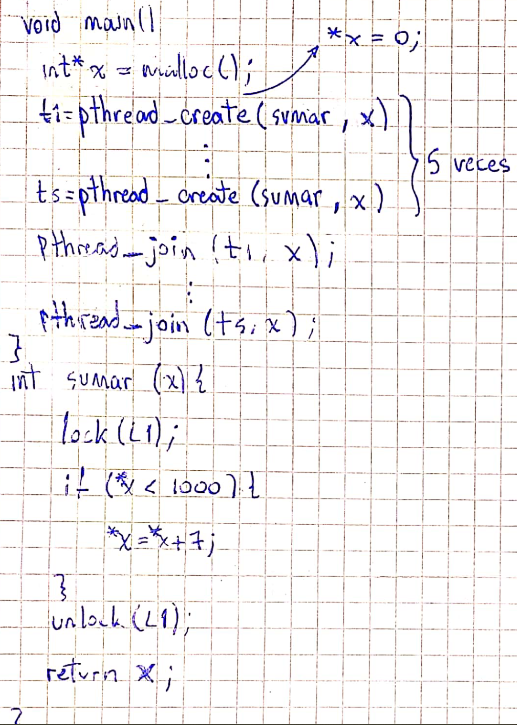 void main()
*x = 0;
int* x = malloc();
t1=pthread_create(sumar, x)
⋮
5 veces
t5=pthread_create (sumar, x)
pthread_join (t1, x);
⋮
pthread_join (t5, x);
}
int sumar (x) {
lock(L1);
if (*x < 1000) {
*x=*x+7;
}
unlock(L1);
return x;
}